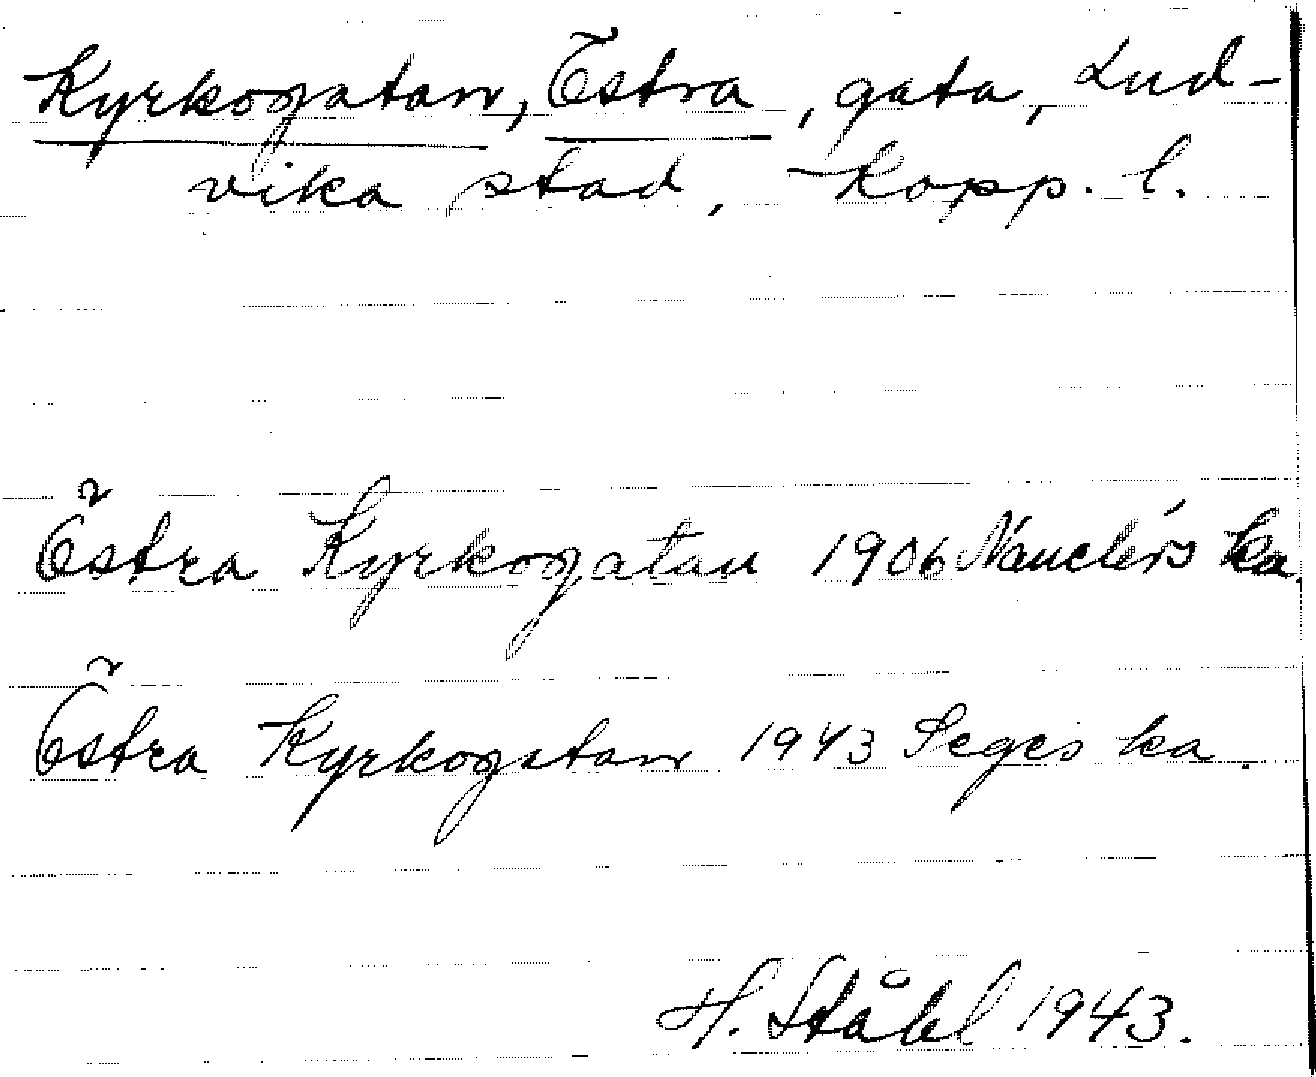 Kyrkogatan, Östra, gata, Lud-
vika stad, Kopp. l.
Östra Kyrkogatan 1906 Nauclérs ka.
Östra Kyrkogatan 1943 Seges ka.
H. Ståhl 1943.